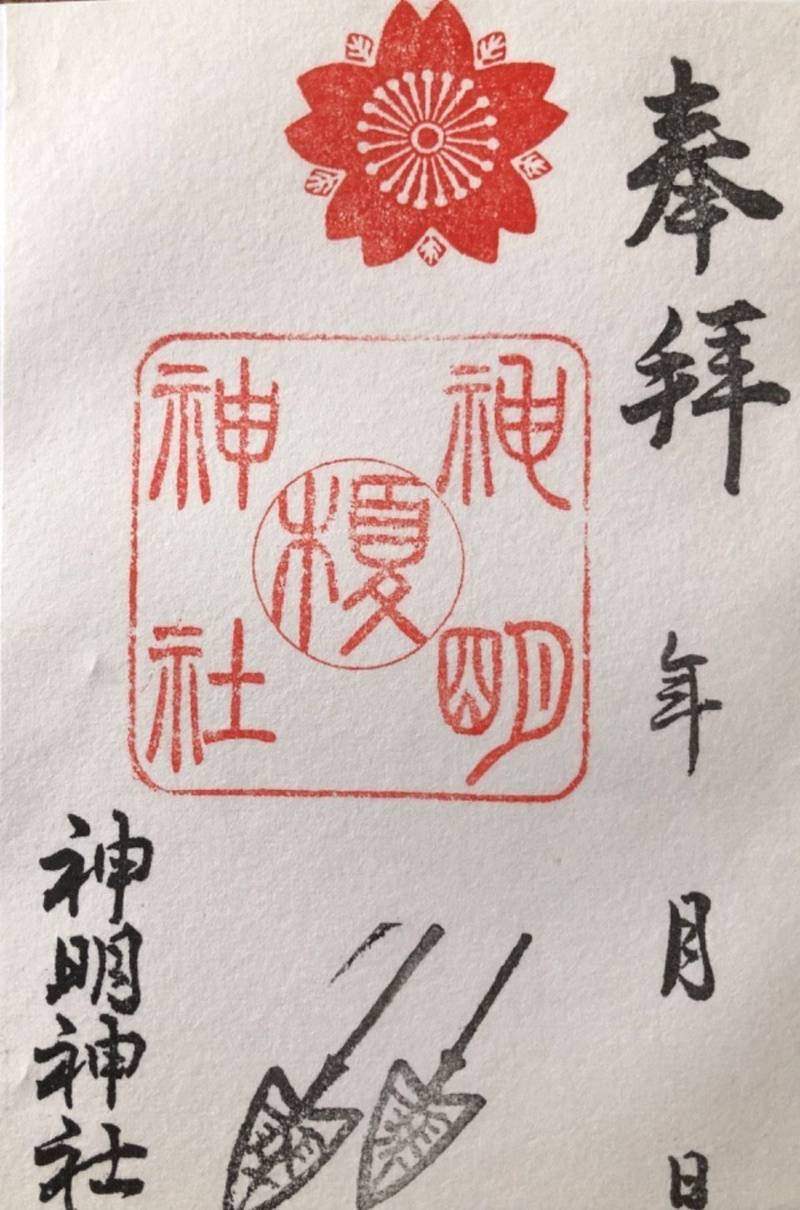 奉拝
年 月 日
神明
榎
神社
神明神社